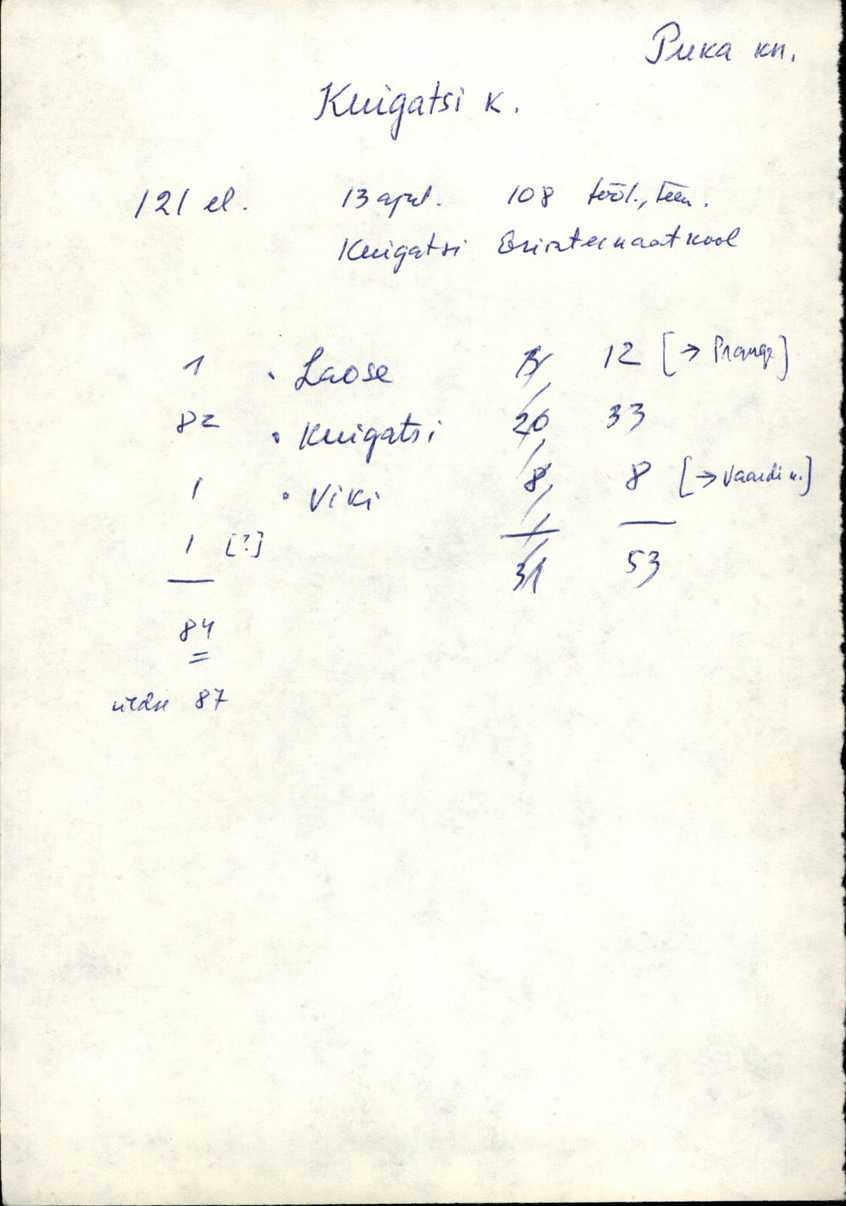 Puka kn.
Kuigatsi k.
121 el. 13 apr. 108 tööl., teen.
Kuigatsi Eriinternaatkool
1 · Laose 12 [→ Prange]
82 · Kuigatsi 20 33
1 · Viki 8 8 [→ Vaardi k.]
1 [?]
31 53
84
üldse 87